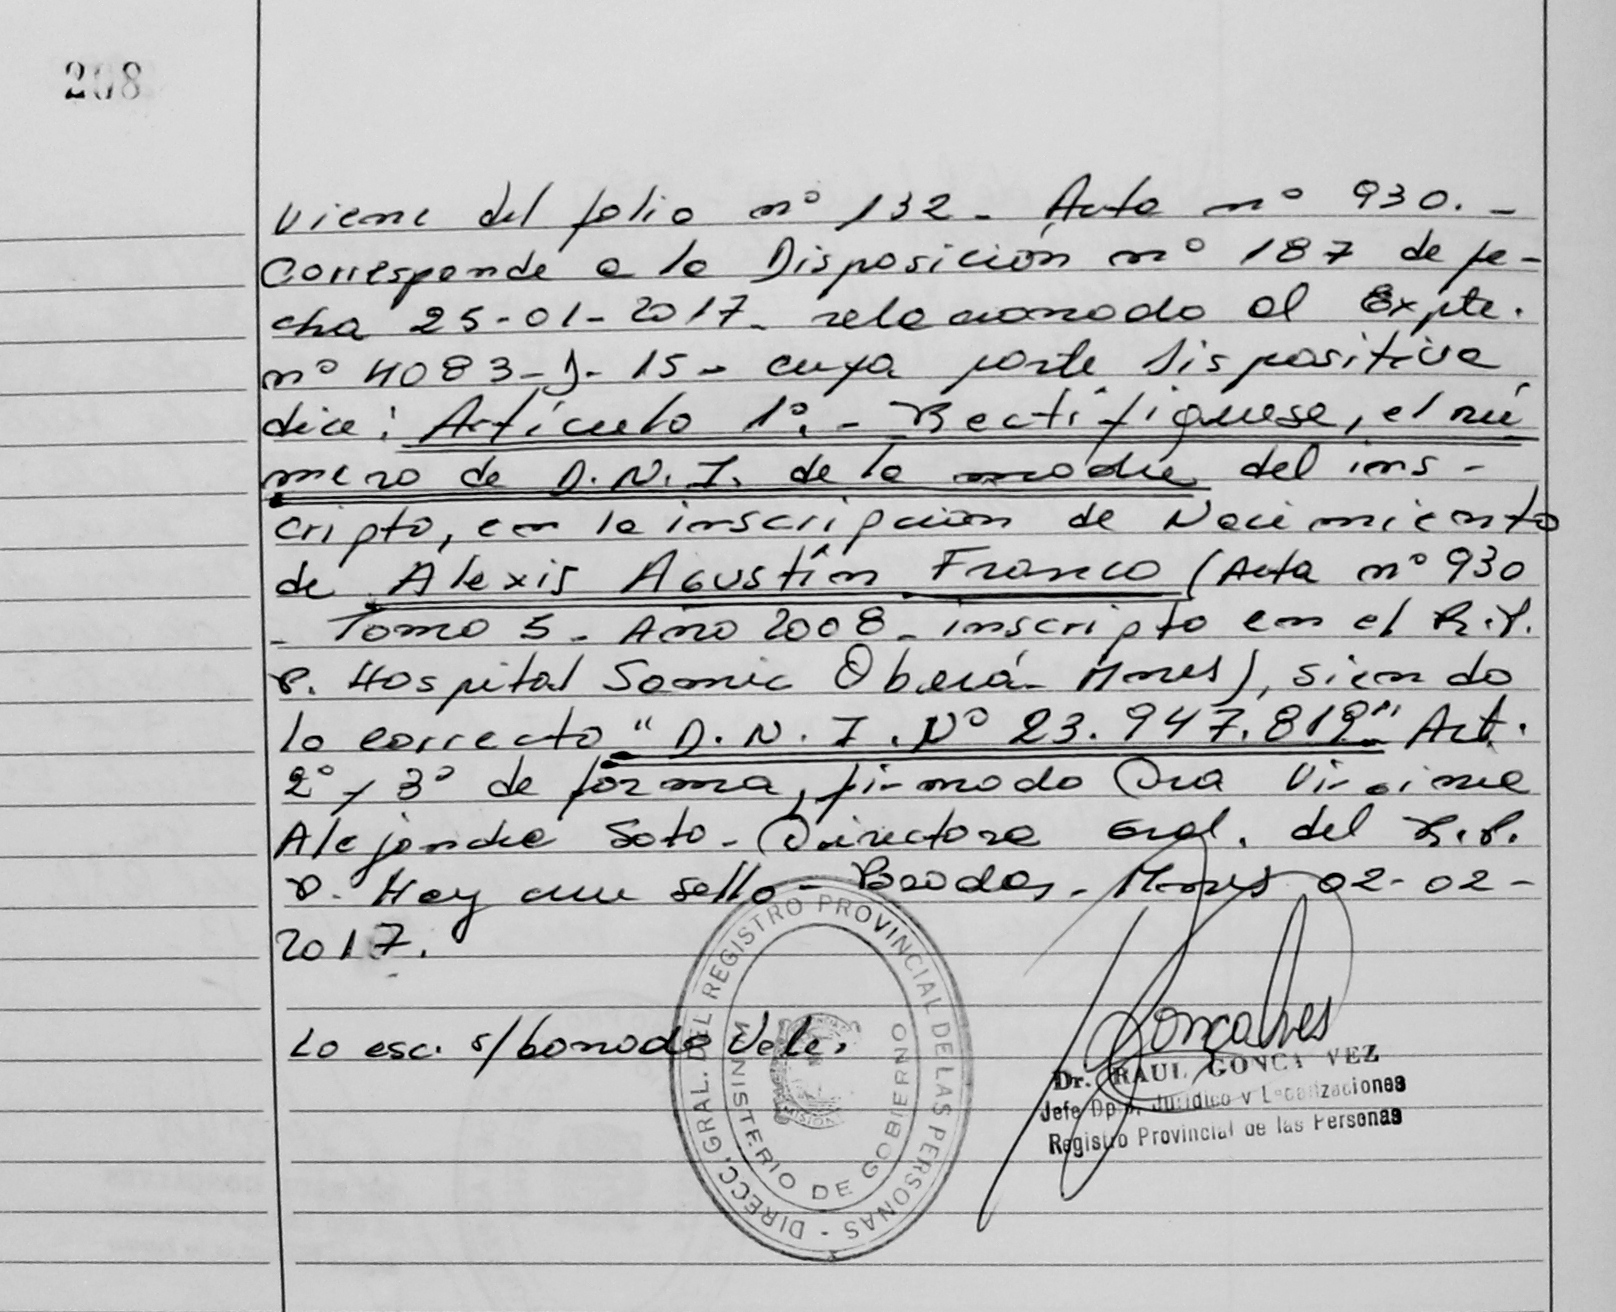 208
Viene del folio nº 132 - Acta nº 930. -
Corresponde a la Disposición nº 187 de fe-
cha 25-01-2017 - relacionado al Expte.
nº 4083-J-15 - cuya parte dispositiva
dice: Artículo 1º. - Rectifíquese, el nú
mero de D.N.I. de la madre del ins-
cripto, en la inscripción de Nacimiento
de Alexis Agustín Franco (Acta nº 930
- Tomo 5 - Año 2008 - inscripto en el R.P.
P. Hospital Samic Oberá - Mnes), siendo
lo correcto "D.N.I. Nº 23.947.819" Art.
2º y 3º de forma, firmado Dra Virginia
Alejandra Soto - Directora Gral. del R.P.
P. Hay un sello - Posadas, Mnes 02-02-
2017.
Lo esc. s/borrado Vale.
DIRECC. GRAL. DEL REGISTRO PROVINCIAL DE LAS PERSONAS -
MINISTERIO DE GOBIERNO
MISIONES
Goncalves
Dr. RAUL GONCALVEZ
Jefe Dpto. Jurídico y Legalizaciones
Registro Provincial de las Personas